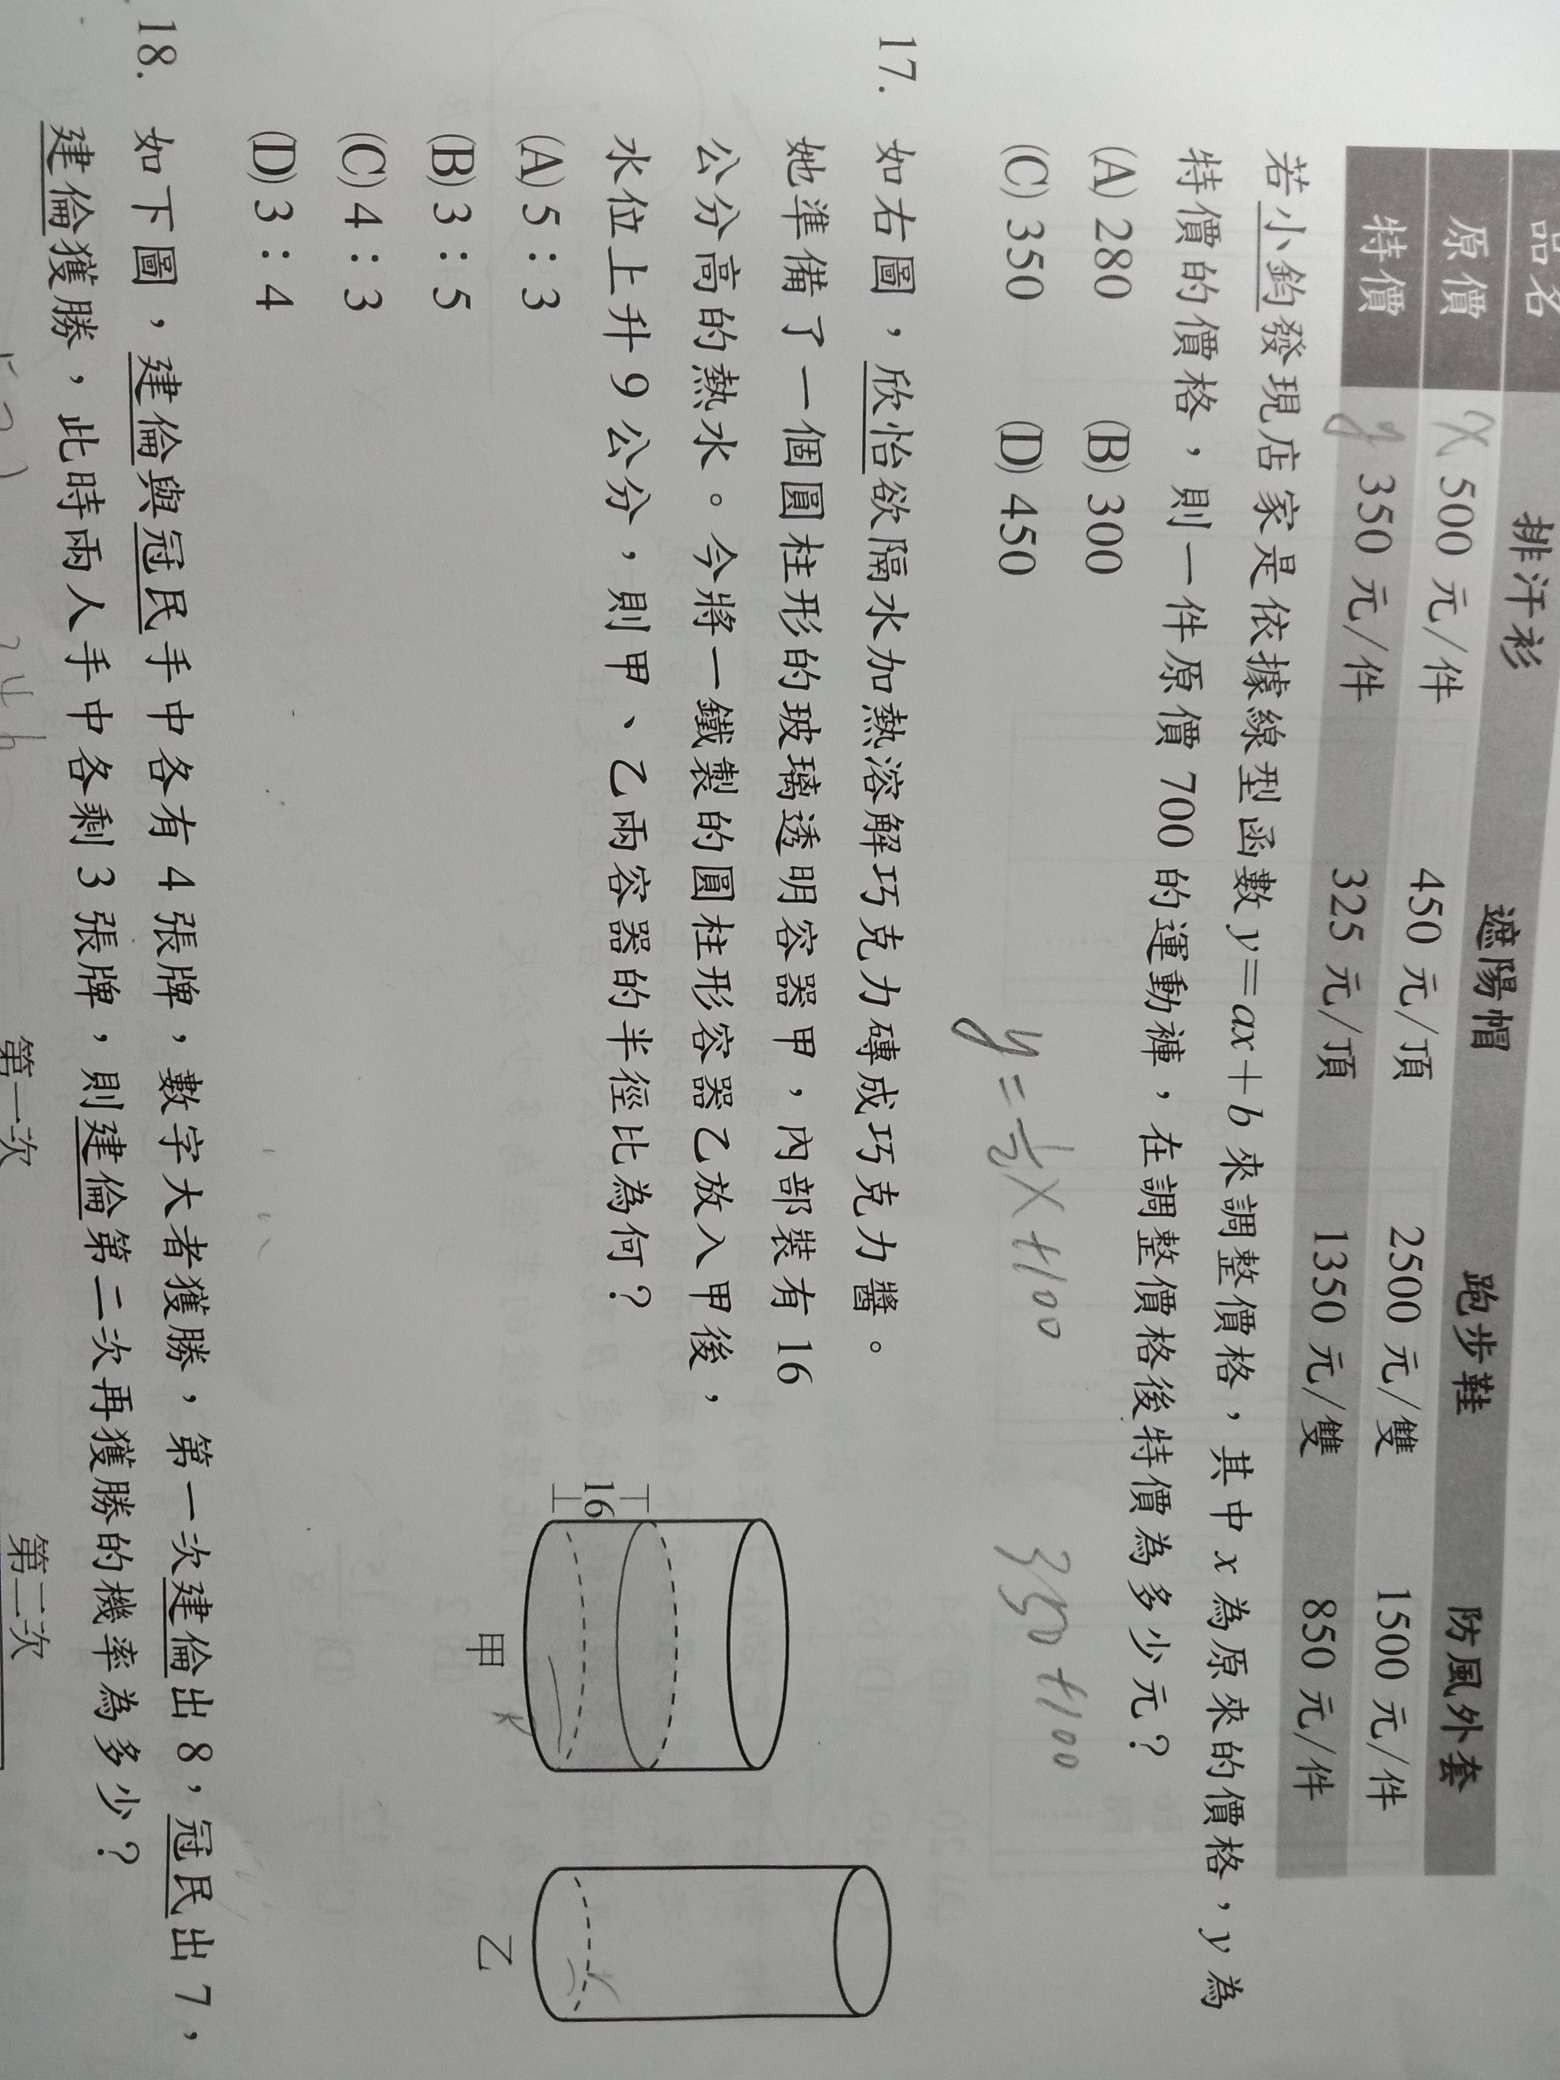 品名 排汗衫 遮陽帽 跑步鞋 防風外套
原價 x 500 元/件 450 元/頂 2500 元/雙 1500 元/件
特價 y 350 元/件 325 元/頂 1350 元/雙 850 元/件
若小鈞發現店家是依據線型函數 y=ax+b 來調整價格，其中 x 為原來的價格，y 為
特價的價格，則一件原價 700 的運動褲，在調整價格後特價為多少元？
(A) 280 (B) 300
(C) 350 (D) 450
y=½x+100 350+100
17. 如右圖，欣怡欲隔水加熱溶解巧克力磚成巧克力醬。
她準備了一個圓柱形的玻璃透明容器甲，內部裝有 16
公分高的熱水。今將一鐵製的圓柱形容器乙放入甲後，
水位上升 9 公分，則甲、乙兩容器的半徑比為何？
(A) 5：3
(B) 3：5
(C) 4：3
(D) 3：4
16
甲
乙
18. 如下圖，建倫與冠民手中各有 4 張牌，數字大者獲勝，第一次建倫出 8，冠民出 7，
建倫獲勝，此時兩人手中各剩 3 張牌，則建倫第二次再獲勝的機率為多少？
第一次 第二次